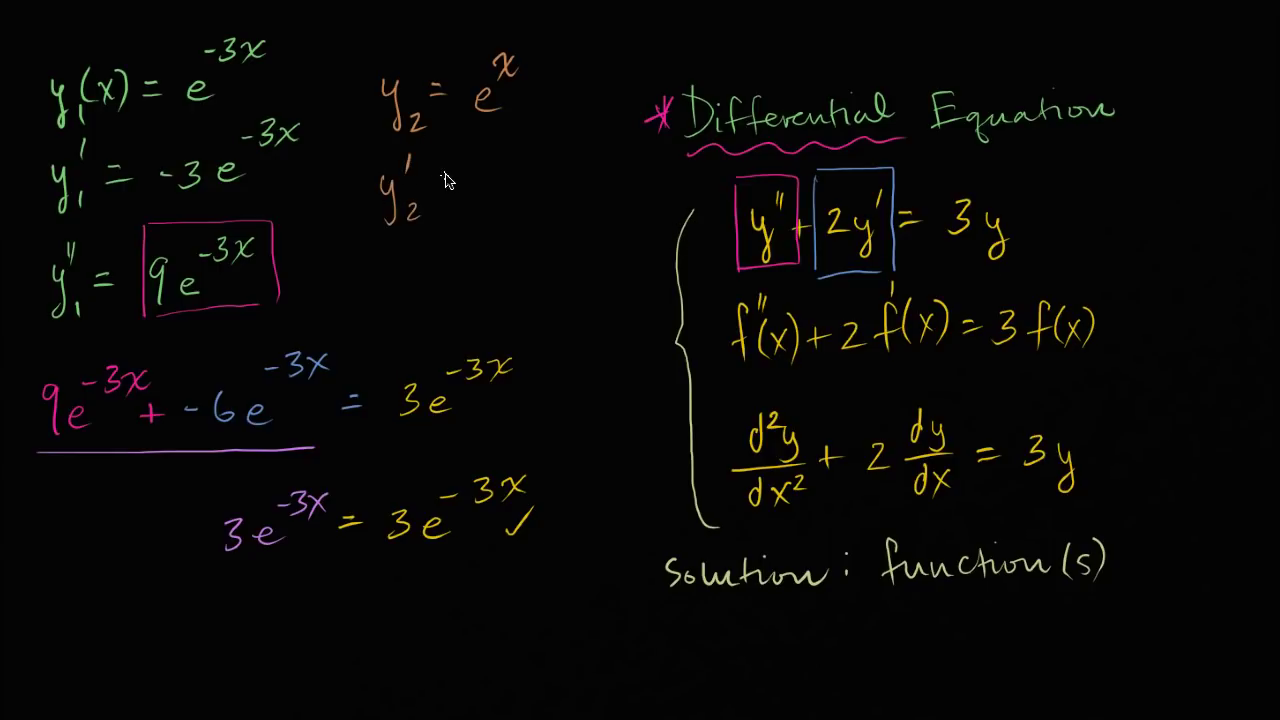 y₁(x) = e^{-3x}
y₁' = -3e^{-3x}
y₁'' = 9e^{-3x}
9e^{-3x} + -6e^{-3x} = 3e^{-3x}
3e^{-3x} = 3e^{-3x} ✓
y₂ = e^{x}
y₂'
* Differential Equation
y'' + 2y' = 3y
f''(x) + 2f'(x) = 3f(x)
d²y/dx² + 2 dy/dx = 3y
solution: function(s)